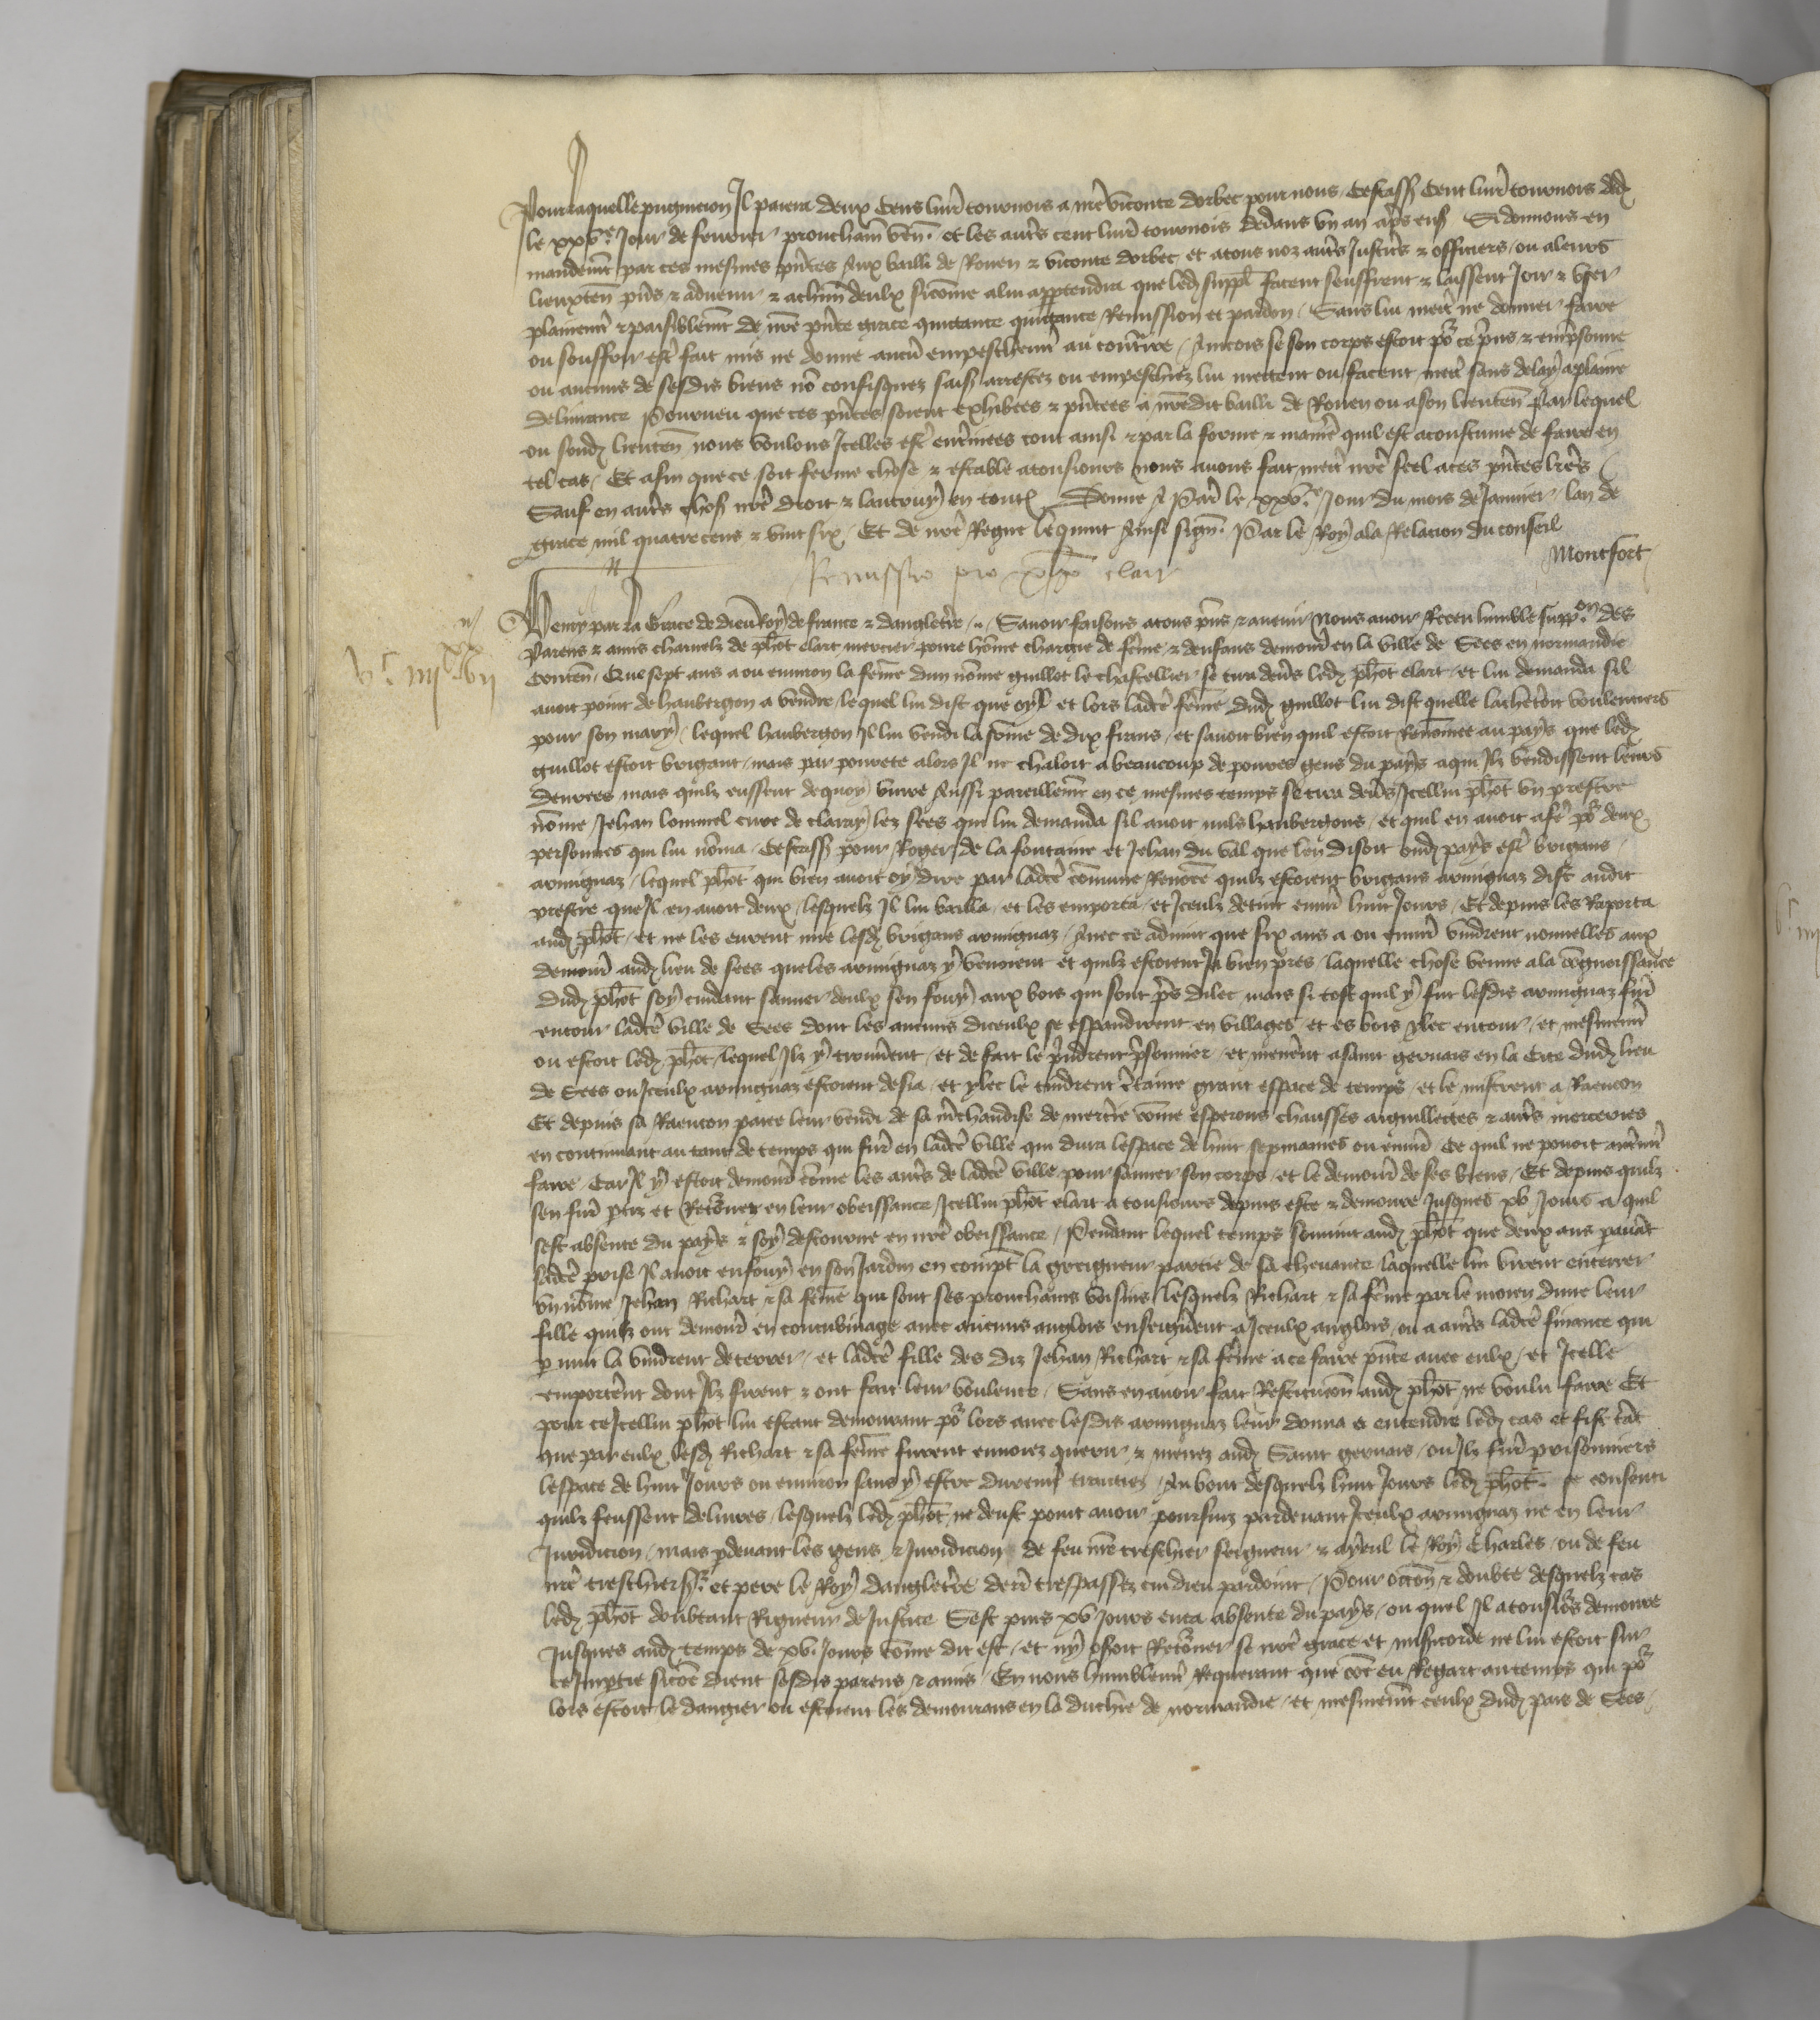 Pour laquelle pugnicion Il paiera deux Cens livr̃ tournois a nr̃e viconte dorbec pour nous Cestass̃ Cent livr̃ tournois dedẽ
le xxve Jour de fevrier prouchain ven̄. et les aut̃s cent livr̃ tournois dedans un an ap̃s ens̃ Si donnons en
mandem̃t par ces mesmes p̃ntes Aux bailli de Rouen & viconte dorbec et atous noz aut̃s Justic̃s & officiers ou aleurs
lieuxten̄ p̃ns & advenir & achũn deulx sicõme alui appartendra que led̃ suppl̃ facent seuffrent & laissent Joir & user
plainem̃t & paisiblem̃t de nr̃e p̃nte grace quictance Remission et pardon Sans lui mect̃ ne donner faire
ou souffrir est̃ fait mis ne donne aucũ empeschem̃t au cont̃ire / Aincois se son corps estoit põ ce p̃ns & emp̃sonne
ou aucuns de sesdis biens nõ confisquez saisĩ arrestez ou empeschiez lui mettent ou facent mect̃ sans delay aplaine
delivrance Pourveu que ces p̃ntes soient exhibees & p̃ntees a nr̃edit bailli de Rouen ou a son lieuten̄ Par lequel
ou sond̃ lieuten̄ nous voulons Icelles est̃ ent̃inees tout ainsi & par la forme & manĩe quil est acoustume de faire en
tel cas Et afin que ce soit ferme chose & estable atousiours nous avons fait mect̃ nr̃e seel aces p̃ntes lr̃es
Sauf en aut̃s chos̃ nr̃e droit & lautruy en tout̃ Donne A Par̃ le xxve Jour du mois de Janvier lan de
grace mil quatrecens & vint six Et de nr̃e Regne le quint Ainsi sign̄. Par le Roy ala Relacion du conseil
Montfort
Remissio pro clart
Henry par la Grace de dieu Roy de france & dangleterre Savoir faisons atous p̃ns & avenir Nous avoir Receu lumble suppon des
Parens & amis charnelz de ph̃ot clart mercier povre hõme chargie de fẽme & denfans demour̃ en la ville de Sees en normandie
Conten̄ Que sept ans a ou environ la fẽme dun nõme guillot le chastellier se tira dev̂s led̃ ph̃ot clart et lui demanda sil
avoit point de haubergon a vendre lequel lui dist que oyl et lors ladc̃e fẽme dud̃ guillot lui dist quelle lachet̃oit voulentiers
pour son mary / lequel haubergon Il lui vendi la sõme de dix frans et savoit bien quil estoit Renõmee au pays que led̃
guillot estoit brigant mais par povrete alors Il ne chaloit a beaucoup de povres gens du pays aqui Ilz vendissent leurs
denrees mais quilz eussent dequoy vivre Aussi pareillem̃t en ce mesmes temps se tira dev̂s Icellui ph̃ot un prestre
nõme Jehan lommel cure de claray lez sees qui lui demanda sil avoit nulz haubergons et quil en avoit afẽ põ deux
personnes qui lui nõma Cestass̃ pour Roger de la fontaine et Jehan du val que len disoit oud̃ pays est̃ brigans
armignaz lequel ph̃ot qui bien avoit oy dire par ladc̃e cõmune Renõee quilz estoient brigans armignaz dist audit
prestre que Il en avoit deux lesquelz Il lui bailla et les emporta et Iceulz detint envir̃ huit Jours Et depuis les Raporta
aud̃ ph̃ot et ne les eurent mie lesd̃ brigans armignaz Avec ce advint que six ans a ou envir̃ vindrent nouvelles aux
demour̃ aud̃ lieu de sees queles armignaz y venoient et quilz estoient Ja bien pres laquelle chose venue ala cõgnoissance
dud̃ ph̃ot soy cuidant sauver deulx sen fouy aux bois qui sont p̃s dilec mais si tost quil y fut lesdis armignaz fur̃
entour ladc̃e ville de Sees dont les aucuns diceulx se espandirent en villages et es bois ylec entour et mesmem̃t
ou estoit led̃ ph̃ot lequel Ilz y trouv̂ent et de fait le p̃indrent p̃sonnier et men̂ent asaint gervais en la Cite dud̃ lieu
de Sees ou Iceulx armignaz estoient desia et ylec le tindrent c̃taine grant espace de temps et le mistrent a Raencon
Et depuis sa Raencon paiee leur vendi de sa m̃chandise de mercerie cõme esperons chausses aguillettes & aut̃s merceries
en continuant autant de temps qui fur̃ en ladc̃e ville qui dura lespace de huit sepmaines ou envir̃ Ce quil ne povoit aut̃m̃t
faire Car Il y estoit demour̃ cõme les aut̃s de ladc̃e ville pour sauver son corps et le demour̃ de ses biens Et depuis quilz
sen fur̃ p̃tiz et Retõnez en leur obeissance Icellui ph̃ot clart a tousiours depuis este & demoure Jusques xv Jours a quil
sest absente du pays & soy destourne en nr̃e obeissance Pendant lequel temps souvint aud̃ ph̃ot que deux ans pavãt
ladc̃e prise Il avoit enfouy en son Jardin en compt̃ la greigneur partie de sa chevance laquelle lui virent enterrer
un nõme Jehan Richart & sa fẽme qui sont ses prouchains voisins lesquelz Richart & sa fẽme par le moien dune leur
fille quilz ont demour̃ en concubinage avec aucuns anglois enseign̂ent a Iceulx anglois ou a aut̃s ladc̃e finance qui
p nuit la vindrent deterrer et ladc̃e fille des diz Jehan Richart & sa fẽme ace faire p̃nte avec eulx et Icelle
emport̂ent dont Ilz firent & ont fait leur voulente Sans en avoir fait Restitucõn aud̃ ph̃ot ne voulu faire Et
pour ce Icellui ph̃ot lui estant demourant põ lors avec lesdis armignaz leur donna a entendre led̃ cas et fist tãt
que par eulx lesd̃ Richart & sa fẽme furent envoiez querir & menez aud̃ Saint gervais ou Ilz fur̃ prisonniers
lespace de huit Jours ou environ sans y estre durem̃t traictiez Au bout desquelz huit Jours led̃ ph̃ot se consenti
quilz feussent delivres lesquelz led̃ ph̃ot ne deust point avoir poursuiz pardevant Iceulx armignaz ne en leur
Juridicion mais pdevant les gens & Juridicion de feu nr̃e treschier seigneur & ayeul le Roy Charles ou de feu
nr̃e treschier sr̃ et pere le Roy dangleterre derr̃ trespassez cui dieu pardoint Pour occõn & doubte desquelz cas
led̃ ph̃ot doubtant Rigueur de Justice Sest puis xv Jours enca absente du pays ou quel Il a tousiõs demoure
Jusques aud̃ temps de xv Jours cõme dit est et ny osoit Retõner se nr̃e grace et mis̃icorde ne lui estoit sur
ce Imp̃tie sicõe dient sesdis parens & amis En nous humblem̃t Requerant que cõe eu Regart au temps qui põ
lors estoit le dangier ou estoient les demourans en la duchie de normandie et mesmem̃t ceulx dud̃ pais de Sees